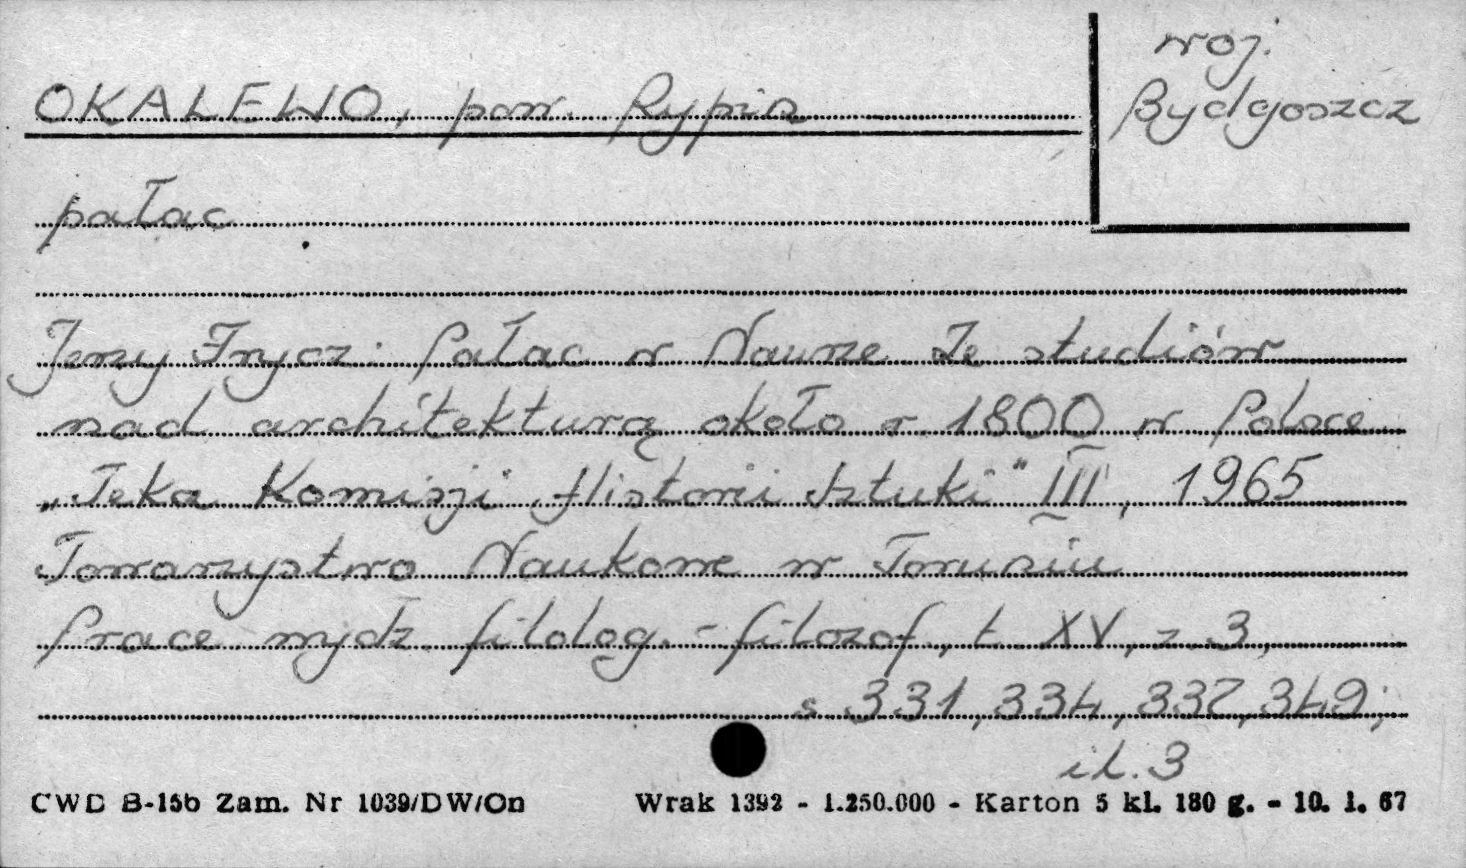 woj.
Bydgoszcz
OKALEWO, pow. Rypin
pałac
Jerzy Frycz: Pałac w Nawrze Ze studiów
nad architekturą około r. 1800 w Polsce
„Teka Komisji Historii Sztuki" III, 1965
Towarzystwo Naukowe w Toruniu
Prace wydz. filolog.-filozof, t. XV, z. 3,
s 331, 334, 337, 349;
il. 3
CWD B-15b Zam. Nr 1039/DW/On Wrak 1392 - 1.250.000 - Karton 5 kl. 180 g. - 10. 1. 67